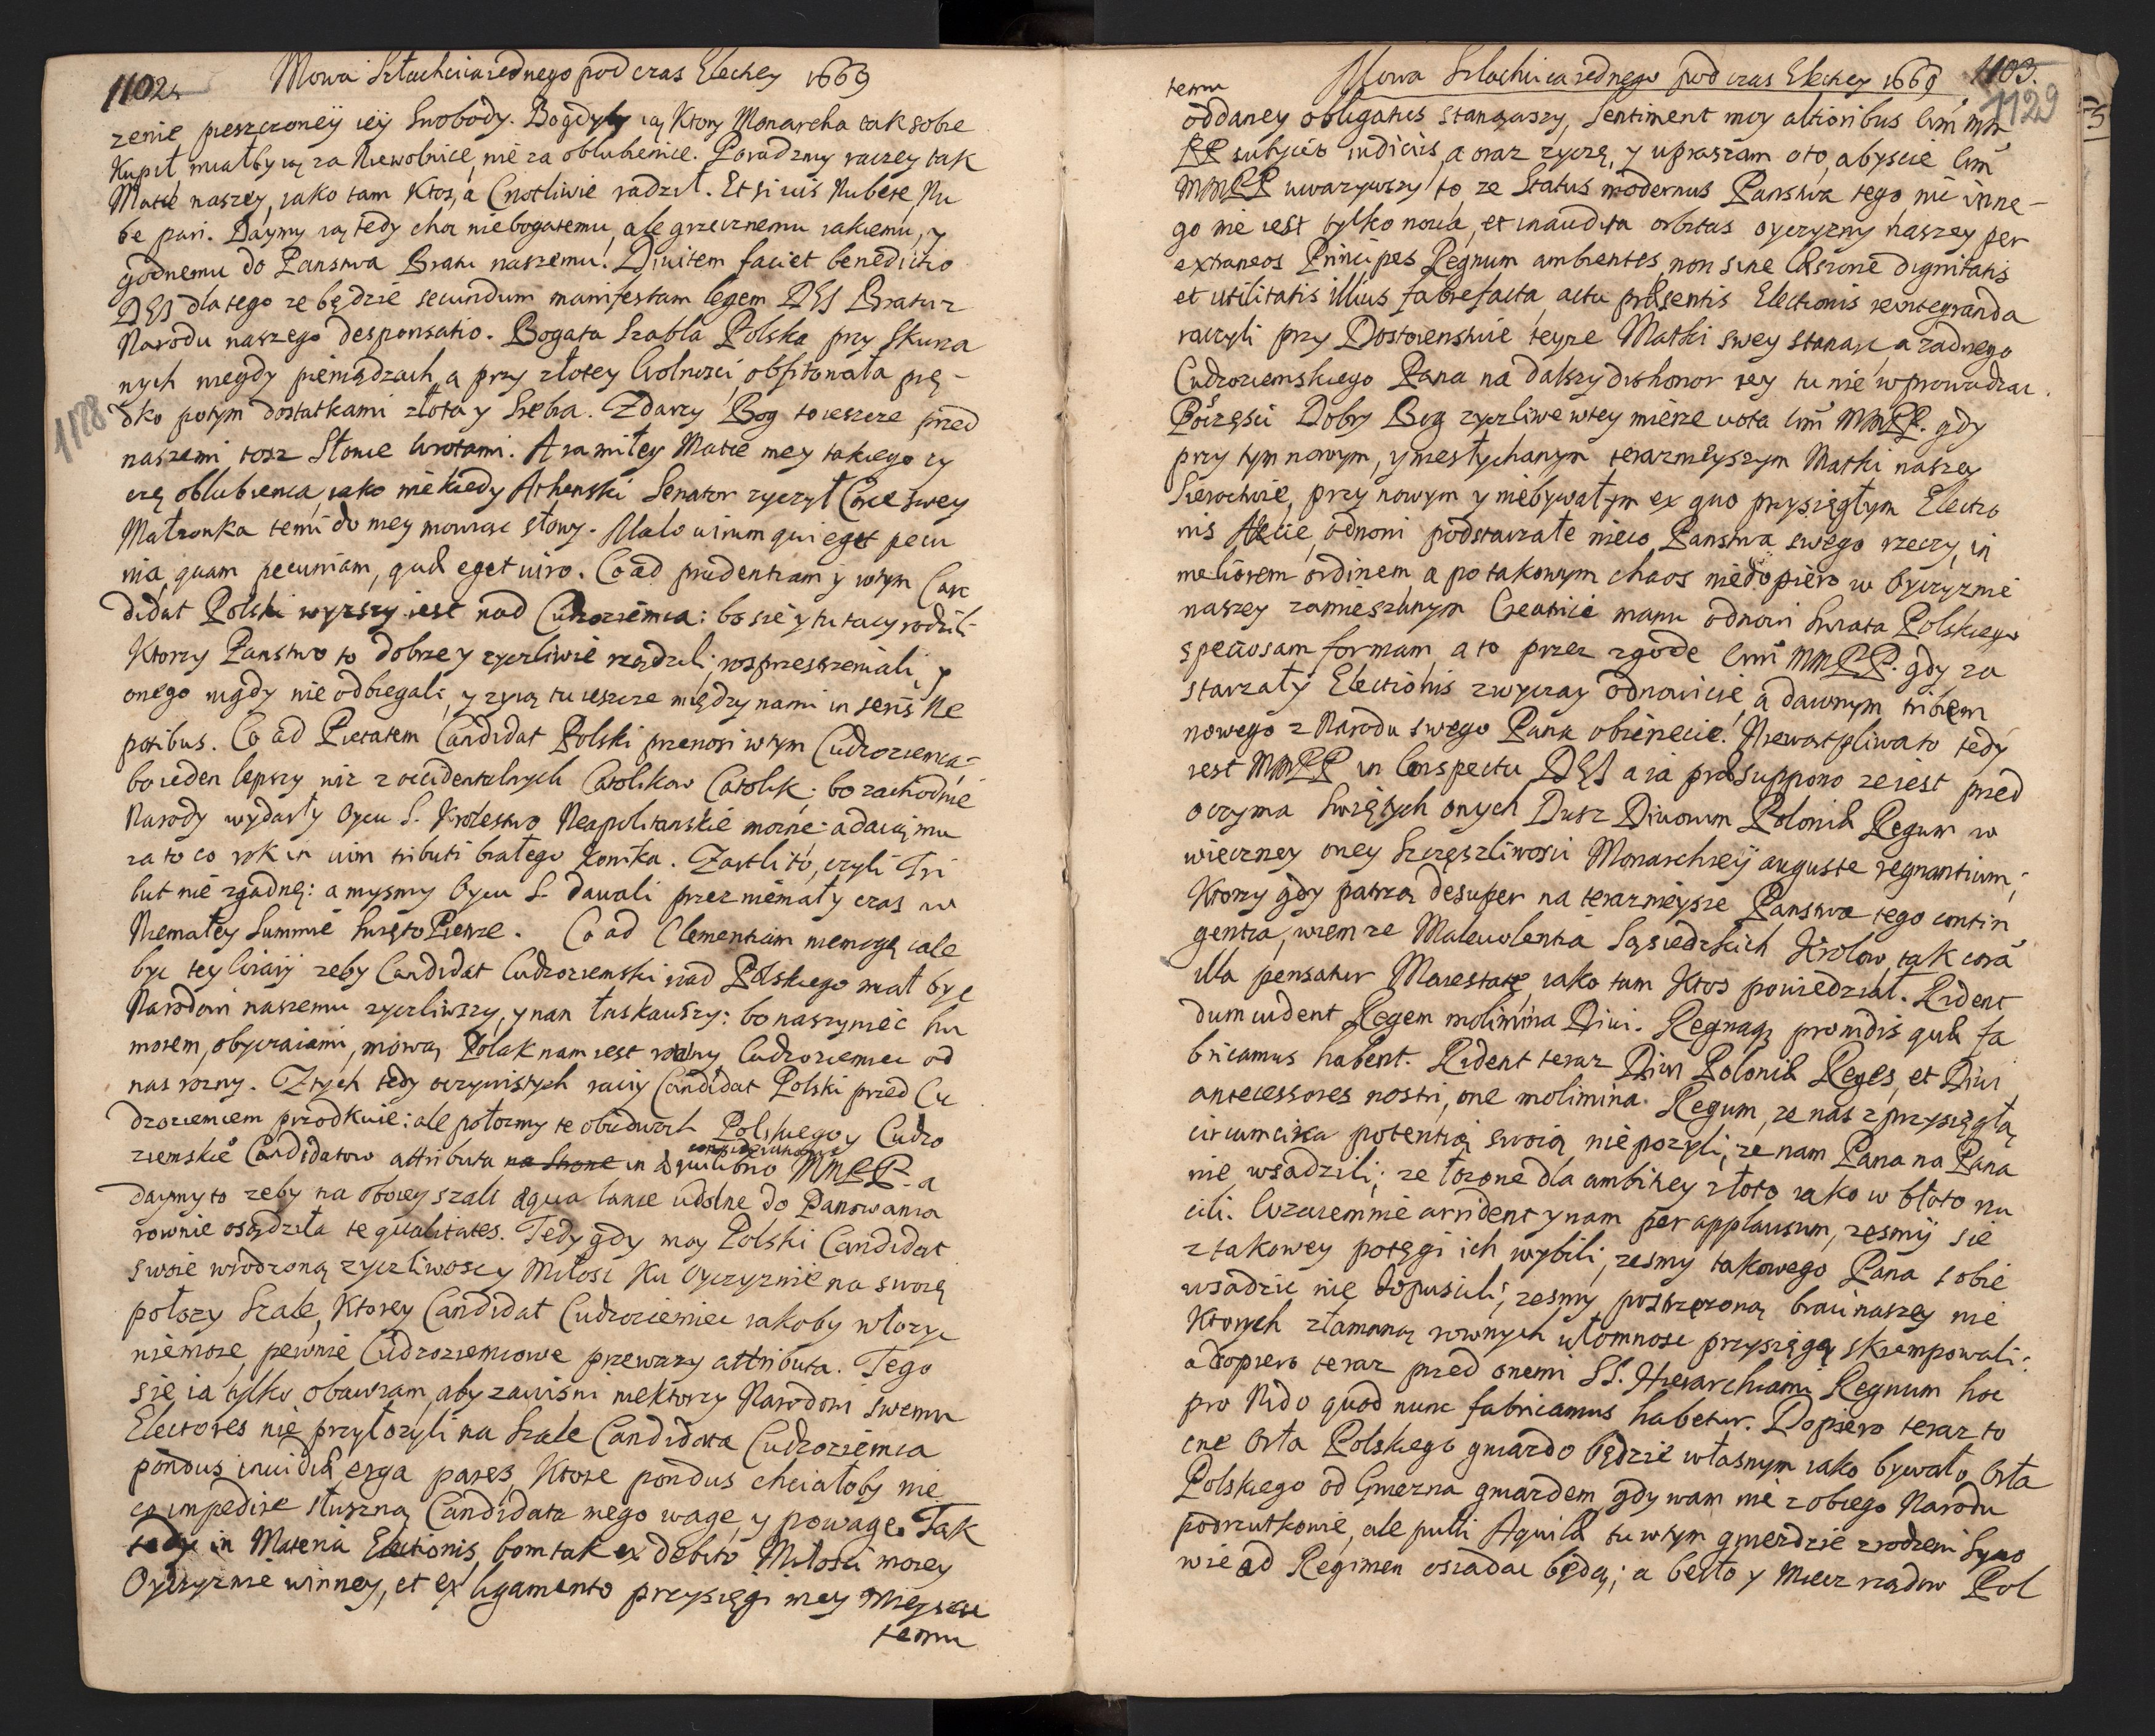 1102
Mowa Szlachcica iednego pod czas Elekcyey 1669
zenie pieszczoneÿ ieÿ Swobody. Bogdyby ią Ktory Monarcha tak sobie
Kupił miałby ią za Niewolnice, nie za oblubienice. Poradzmy raczey tak
Matce naszey, iako tam Ktoś, a Cnotliwie radził. Et si uis Nubere, Nu
be pari. Daymy ią tedy choc niebogatemu, ale grzecznemu iakiemu, y
godnemu do Panstwa Bratu naszemu. Diuitem faciet benedictio
DEI dlatego ze będzie secundum manifestam legem DEI Bratu z
Narodu naszego desponsatio. Bogata Szabla Polska przy Skurza
nych niegdy pieniądzach, a przy złotey Wolnosci, obfitowała prę-
dko potym dostatkami złota y Srebra. Zdarzy Bog to ieszcze przed
1128
naszemi tosz Słonce Wrotami. A ia miłey Matce mey takiego zy
czę oblubienca, iako niekiedy Athenski Senator zyczył Corce swey
Małzonka temi do niey mowiac słowy. Malo uirum qui eget pecu
nia, quam pecuniam, quæ eget uiro. Co ad prudentiam y wtym Can
didat Polski wyzszy iest nad Cudzoziemca: bo sie y tu tacy rodzili
Ktorzy Panstwo to dobrze y zyczliwie rządzili, rosprzestrzeniali, y
onego nigdy nie odbiegali, y zyią tu ieszcze między nami in seris Ne
potibus. Co ad Pietatem Candidat Polski przenosi wtym Cudzoziemca;
bo ieden lepszy niz z occidentalnych Catolikow Catolik; bo zachodnie
Narody wydarły Oycu S. Krolestwo Neapolitanskie mozne: a daią mu
za to co rok in uim tributi białego konika. Zart li to, czyli Tri
but nie zgadnę: a mysmy Oycu S. dawali przez niemały czas w
Niemałey Summie Swięto Pietrze. Co ad Clementiam niemogę cale
byc tey Wiary zeby Candidat Cudzoziemski nad Polskiego miał byc
Narodowi naszemu zyczliwszy, y nan łaskawszy: bo naszyniec hu
morem, obyczaiami, mową Polak nam iest rowny Cudzoziemiec od
nas rozny. Z tych tedy oczywistych raciy Candidat Polski przed Cu
dzoziemcem przodkuie: ale połozmy te obudwoch Polskiego y Cudzo
ziemskie Candidatow attributa na Stronę in æquilibrio considerationis MMPP. a
daymy to zeby na obiey szali æqua lance udolne do Panowania
rownie osądziła te qualitates. Tedy gdy moy Polski Candidat
swoie wrodzoną zyczliwosc y Miłosc Ku Oyczyznie na swoię
połozy Szale, Ktorey Candidat Cudzoziemiec iakoby włozyc
niemoze, pewnie Cudzoziemcowe przewazy attributa. Tego
się ia tylko obawiam, aby zawisni niektorzy Narodowi swemu
Electores nie przyłozyli na Szale Candidata Cudzoziemca
pondus inuidiæ erga pares, Ktore pondus chciałoby nie
co impedire słuszną Candidata mego wage, y powage. Tak
tedy in Materia Electionis, bom tak ex debito Miłosci moiey
Oyczyznie winney, et ex ligamento przysięgi mey Mieyscu
temu
1103.
1129
Mowa Szlachcica iednego pod czas Elekcyey 1669
temu
oddaney obligatus stanąwszy, Sentiment moy altioribus Wm̃ Mm
PP subiicio iudiciis, a oraz zyczę, y upraszam oto, abyscie Wm̃
MMPP uwazywszy to, ze Status modernus Panstwa tego nic inne-
go nie iest tylko noua, et inaudita orbitas oyczyzny naszey per
extraneos Principes Regnum ambientes, non sine læsione dignitatis
et utilitatis illius fabrefacta, actu præsentis Electionis reintegranda
raczyli przy Dostoienstwie teyze Matki swey stanac, a zadnego
Cudzoziemskiego Pana na dalszy dishonor iey tu nie wprowadzac.
Poszczęsci Dobry Bog zyczliwe wtey mierze uota Wm̃ MMPP. gdy
przy tym nowym, y niesłychanym teraznieyszym Matki naszey
Sieroctwie, przy nowym y niebywałym ex quo przysięgłym Electio
nis Akcie, odnowi podstarzałe nieco Panstwa swego rzeczy, in
meliorem ordinem a po takowym chaos niedopiero w Oyczyznie
naszey zamieszanym Creatrice manu odnowi Swiata Polskiego
speciosam formam, a to przez zgode Wm̃ MMPP. gdy za
starzały Electionis zwyczay odnowicie, a dawnym tribem
nowego z Narodu swego Pana obierzecie. Niewątpliwa to tedy
iest MMPP in Conspectu DEI a ia præsuppono ze iest przed
oczyma Swiętych onych Dusz Diuorum Poloniæ Regum w
wieczney oney Szczęszliwosci Monarchieÿ auguste regnantium;
Ktorzy gdy patrzą desuper na teraznieysze Panstwa tego contin
gentia, wiem ze Maleuolentia Sąsiedzkich Krolow, tak corã
illa pensatur Maiestate, iako tam Ktos powiedział. Rident
dum cudent Regem molimina Diui. Regnaq; pro nidis quæ fa
bricamus habent. Rident teraz Diui Poloniæ Reges, et Diui
antecessores nostri, one molimina Regum, ze nas z przysięgłą
circumcirca potentią swoią niepozyli; ze nam Pana na Pana
nie wsadzili; ze łozone dla ambitiey złoto iako w błoto rzu
cili. Wzaiemnie arrident y nam per applausum, zesmÿ sie
z takowey potęgi ich wybili, zesmy takowego Pana sobie
wsadzic nie dopuscili, zesmy postrzezoną braci naszey nie
Ktorych złamaną rownych ułomnosc przysięgą skrempowali:
a dopiero teraz przed onemi SS. Hierarchiami Regnum hoc
pro Nido quod nunc fabricamus habetur. Dopiero teraz to
cne Orła Polskiego gniazdo będzie własnym iako bywało, Orła
Polskiego od Gniezna gniazdem gdy wam nie z obiego Narodu
podrzutkowie, ale pulli Aquilæ tu wtym gniezdzie zrodzeni Syno
wie ad Regimen osiadac będą; a berło y Miecz rządow Pol